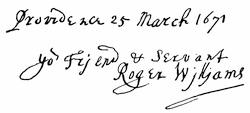 Providence 25 March 1671
yor Frjend & Servant
Roger Wjlljams